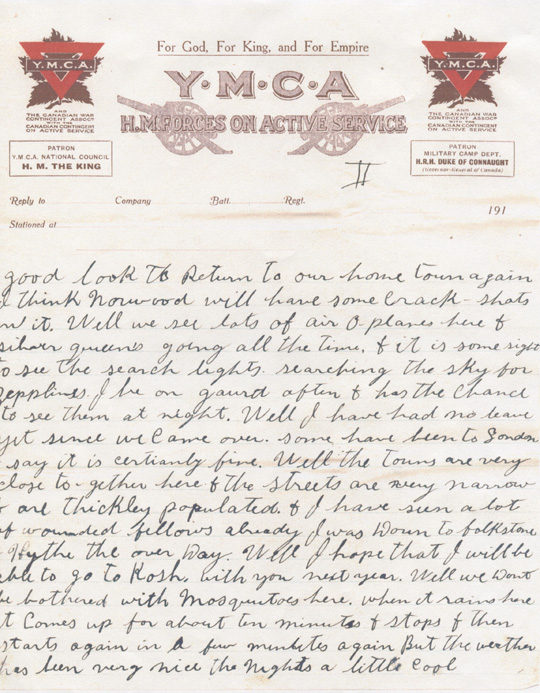 For God, For King, and For Empire
Y·M·C·A
H.M. FORCES ON ACTIVE SERVICE
Y.M.C.A.
AND
THE CANADIAN WAR
CONTINGENT ASSOCN
WITH THE
CANADIAN CONTINGENT
ON ACTIVE SERVICE
PATRON
Y.M.C.A. NATIONAL COUNCIL
H. M. THE KING
Y.M.C.A.
AND
THE CANADIAN WAR
CONTINGENT ASSOCN
WITH THE
CANADIAN CONTINGENT
ON ACTIVE SERVICE
PATRON
MILITARY CAMP DEPT.
H.R.H. DUKE OF CONNAUGHT
(Governor-General of Canada)
II
Reply to Company Batt. Regt.
191
Stationed at
good look to Return to our home town again
think Norwood will have some Crack-shots
in it. Well we see lots of air O-planes here &
silver queens going all the time, & it is some sight
to see the search lights. searching the sky for
zepplines. I be on gaurd often & has the Chanc
to see them at night. Well I have had no leave
yet since we Came over. some have been to London
say it is certianly fine. Well the towns are very
close to-gether here & the streets are very narrow
& are thickley populated. & I have seen a lot
of wounded fellows already I was Down to folkstone
Hythe the over Day. Well I hope that I will be
able to go to Kosh. with you next year. Well we Dont
be bothered with Mosquitoes here. when it rains here
it Comes up for about ten minutes & stops & then
starts again in a few minuetes again But the weather
has been very nice the Nights a little Cool